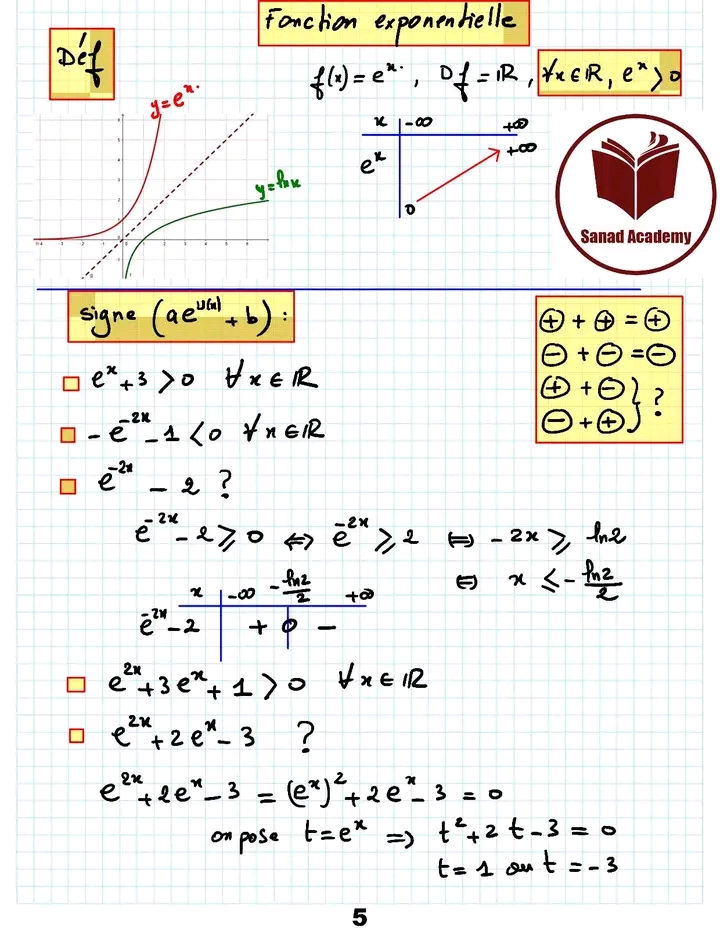 Fonction exponentielle
Déf
f(x) = e^x , Df = ℝ , ∀x ∈ ℝ, e^x > 0
y = e^x
y = ln x
x -∞ +∞
e^x 0 +∞
Sanad Academy
Signe (ae^{U(x)} + b) :
⊕ + ⊕ = ⊕
⊖ + ⊖ = ⊖
⊕ + ⊖ } ?
⊖ + ⊕
e^x + 3 > 0 ∀x ∈ ℝ
-e^{-2x} - 1 < 0 ∀x ∈ ℝ
e^{-2x} - 2 ?
e^{-2x} - 2 ⩾ 0 ⇔ e^{-2x} ⩾ 2 ⇔ -2x ⩾ ln2
⇔ x ⩽ -ln2/2
x -∞ -ln2/2 +∞
e^{-2x} - 2 + 0 -
e^{2x} + 3e^x + 1 > 0 ∀x ∈ ℝ
e^{2x} + 2e^x - 3 ?
e^{2x} + 2e^x - 3 = (e^x)^2 + 2e^x - 3 = 0
on pose t = e^x ⇒ t^2 + 2t - 3 = 0
t = 1 ou t = -3
5